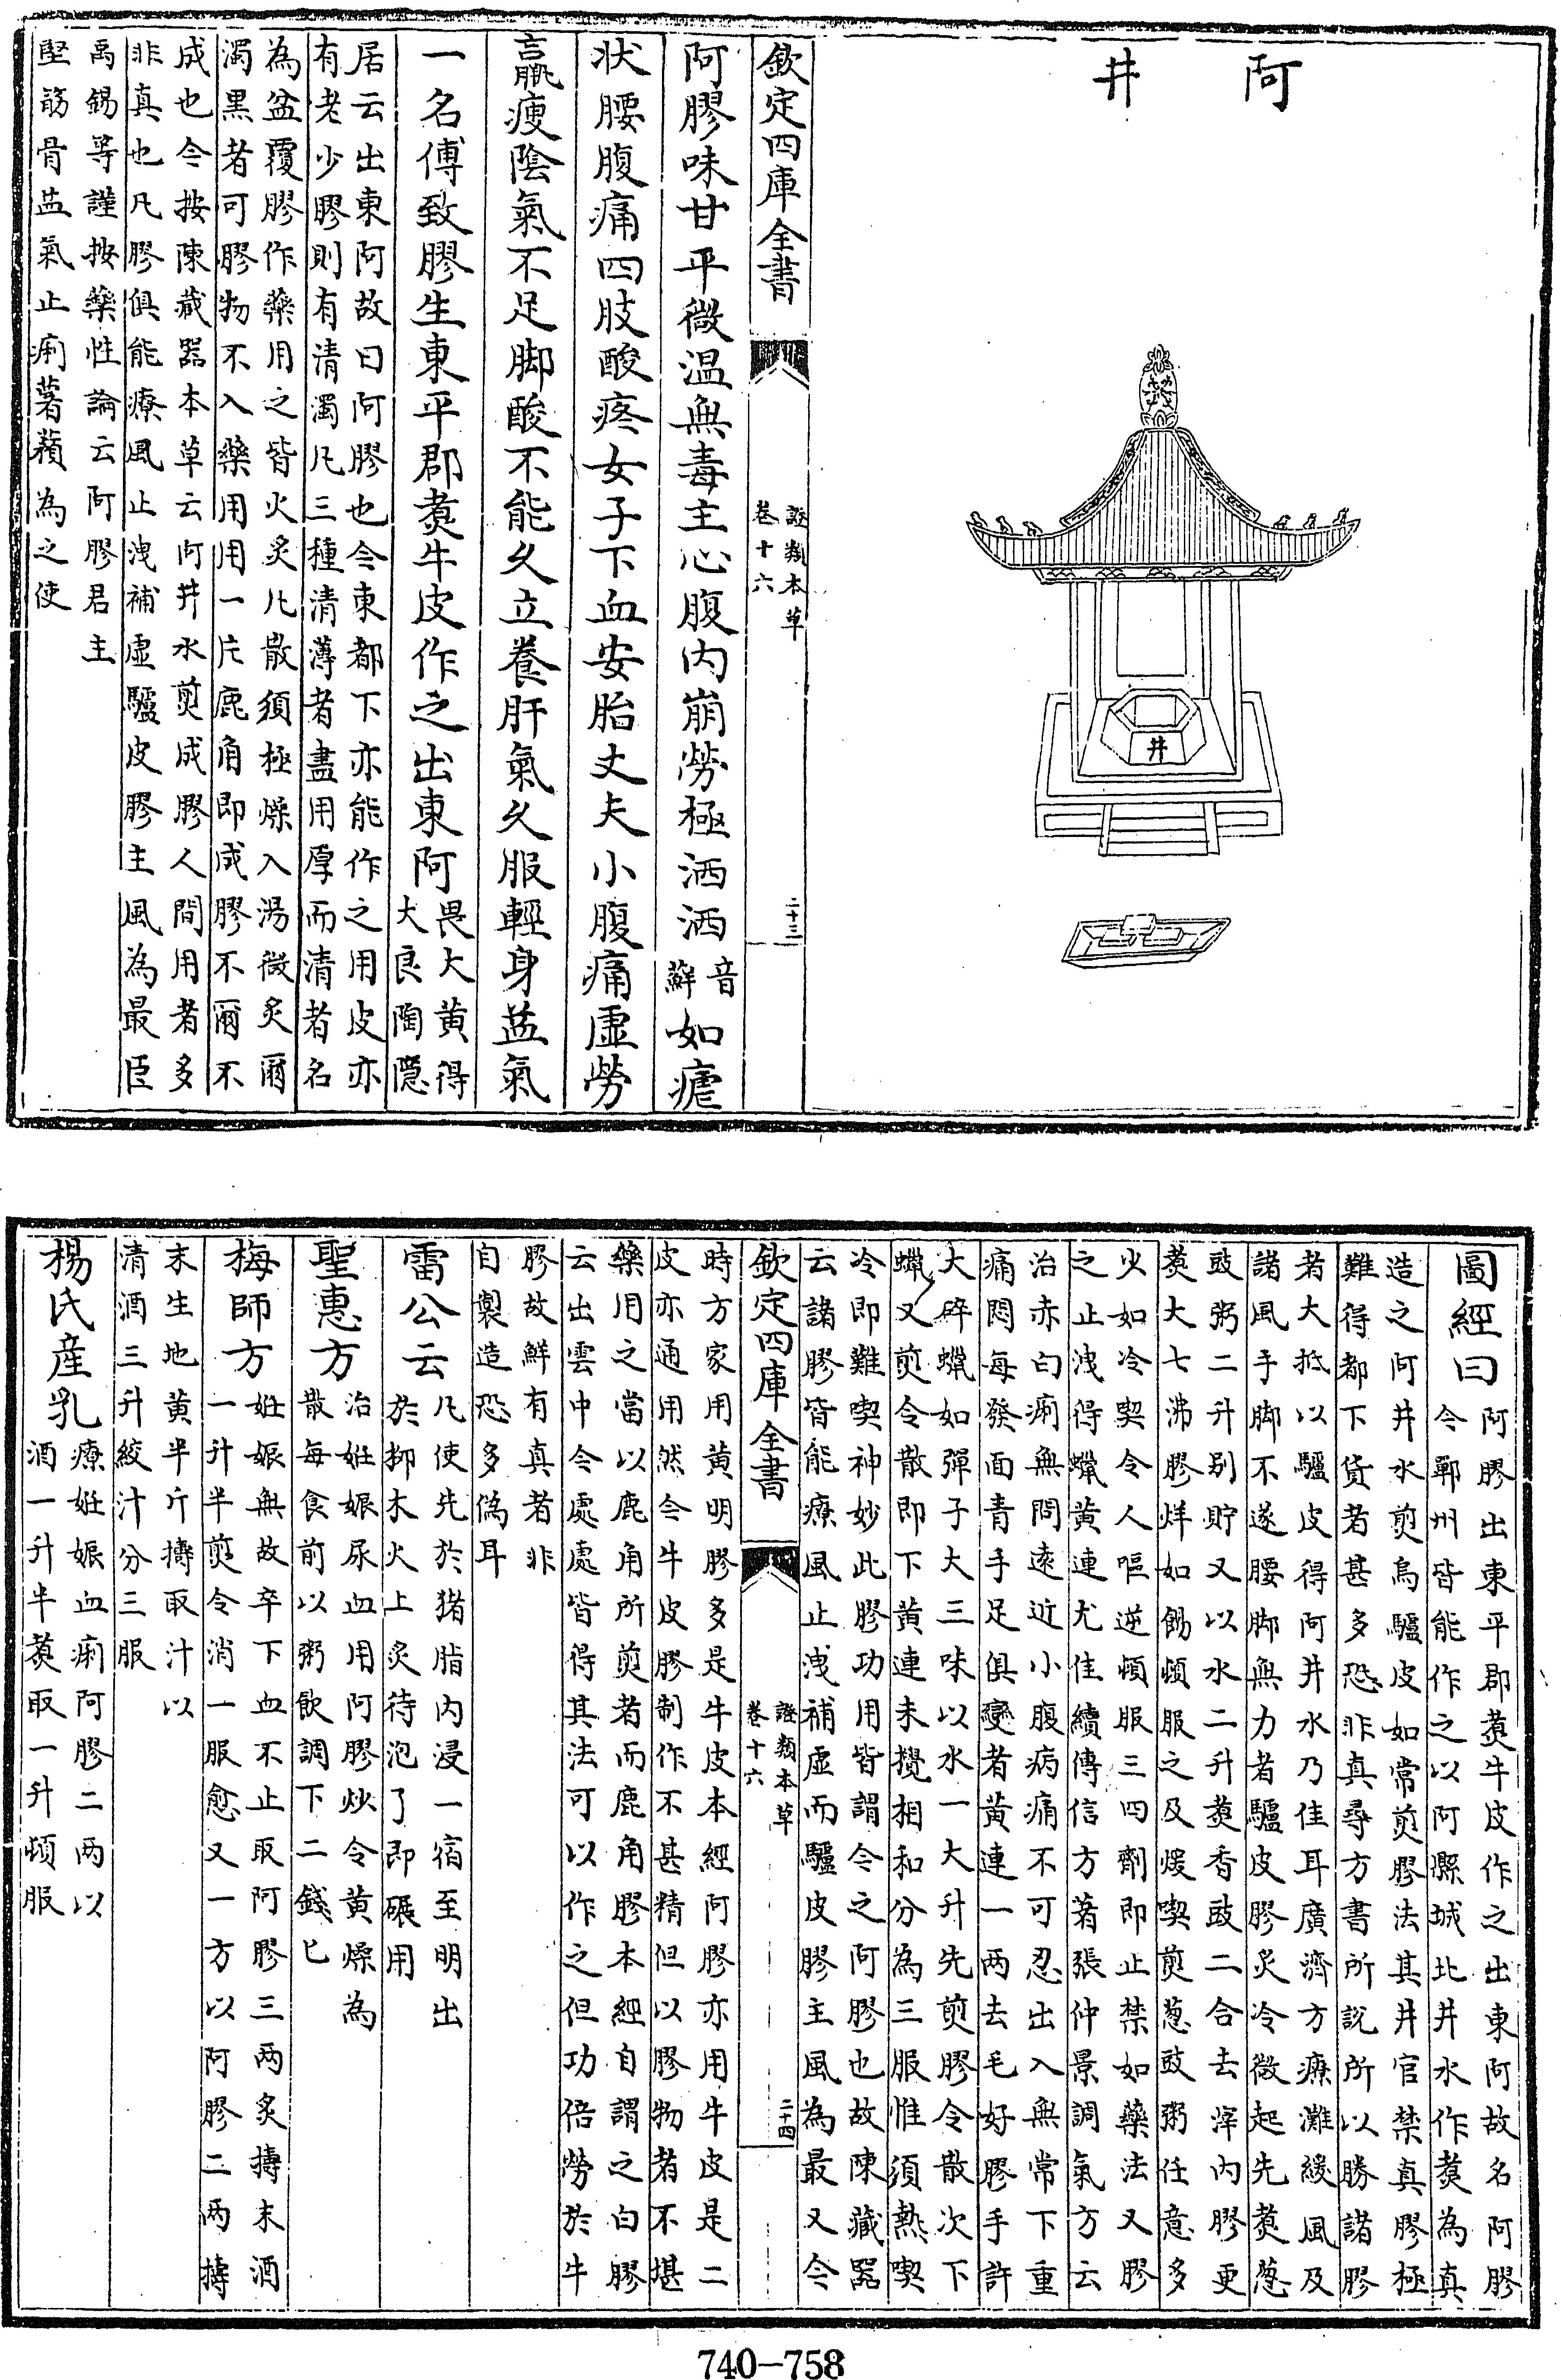 阿井
井
欽定四庫全書
證類本草
卷十六
二十三
阿膠味甘平微温無毒主心腹内崩勞極洒洒音蘇如瘧
狀腰腹痛四肢酸疼女子下血安胎丈夫小腹痛虚勞
羸瘦陰氣不足脚酸不能久立養肝氣久服輕身益氣
一名傅致膠生東平郡煑牛皮作之出東阿
畏大黄得
大良陶隠
居云出東阿故曰阿膠也今東都下亦能作之用皮亦
有老少膠則有清濁凡三種清薄者盡用厚而清者名
為盆覆膠作藥用之皆火炙凡散須極燥入湯微炙爾
濁黒者可膠物不入藥用用一片鹿角即成膠不爾不
成也今按陳藏器本草云阿井水煎成膠人間用者多
非真也凡膠俱能療風止洩補虚驢皮膠主風為最臣
禹錫等謹按藥性論云阿膠君主
堅筋骨益氣止痢薯蕷為之使
圖經曰
阿膠出東平郡煑牛皮作之出東阿故名阿膠
今鄆州皆能作之以阿縣城北井水作煑為真
造之阿井水煎烏驢皮如常煎膠法其井官禁真膠極
難得都下貨者甚多恐非真尋方書所說所以勝諸膠
者大抵以驢皮得阿井水乃佳耳廣濟方療灘緩風及
諸風手脚不遂腰脚無力者驢皮膠炙冷微起先煑葱
豉粥二升别貯又以水二升煑香豉二合去滓内膠更
煑大七沸膠烊如餳頓服之及煖喫煎葱豉粥任意多
少如冷喫令人嘔逆頓服三四劑即止禁如藥法又膠
之止洩得蠟黄連尤佳續傳信方著張仲景調氣方云
治赤白痢無問逺近小腹病痛不可忍出入無常下重
痛悶每發面青手足俱變者黄連一兩去毛好膠手許
大碎蠟如彈子大三味以水一大升先煎膠令散次下
蠟又煎令散即下黄連末攪相和分為三服惟須熱喫
冷即難喫神妙此膠功用皆謂今之阿膠也故陳藏器
云諸膠皆能療風止洩補虚而驢皮膠主風為最又今
欽定四庫全書
證類本草
卷十六
二十四
時方家用黄明膠多是牛皮本經阿膠亦用牛皮是二
皮亦通用然今牛皮膠制作不甚精但以膠物者不堪
藥用之當以鹿角所煎者而鹿角膠本經自謂之白膠
云出雲中今處處皆得其法可以作之但功倍勞於牛
膠故鮮有真者非
自製造恐多偽耳
雷公云
凡使先於猪脂内浸一宿至明出
於柳木火上炙待泡了即碾用
聖惠方
治姙娠尿血用阿膠炒令黄燥為
散每食前以粥飲調下二錢匕
梅師方
姙娠無故卒下血不止取阿膠三兩炙擣末酒
一升半煎令消一服愈又一方以阿膠二兩擣
末生地黄半斤擣取汁以
清酒三升絞汁分三服
楊氏産乳
療姙娠血痢阿膠二兩以
酒一升半煑取一升頓服
740—758